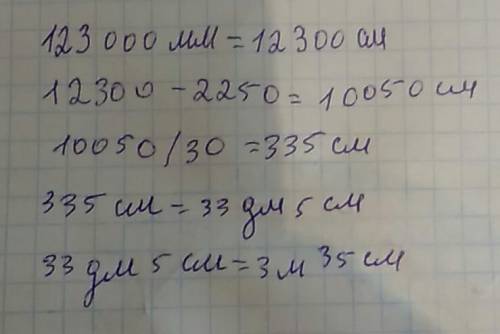 123 000 мм = 12300 см
12300 - 2250 = 10050 см
10050 / 30 = 335 см
335 см = 33 дм 5 см
33 дм 5 см = 3 м 35 см